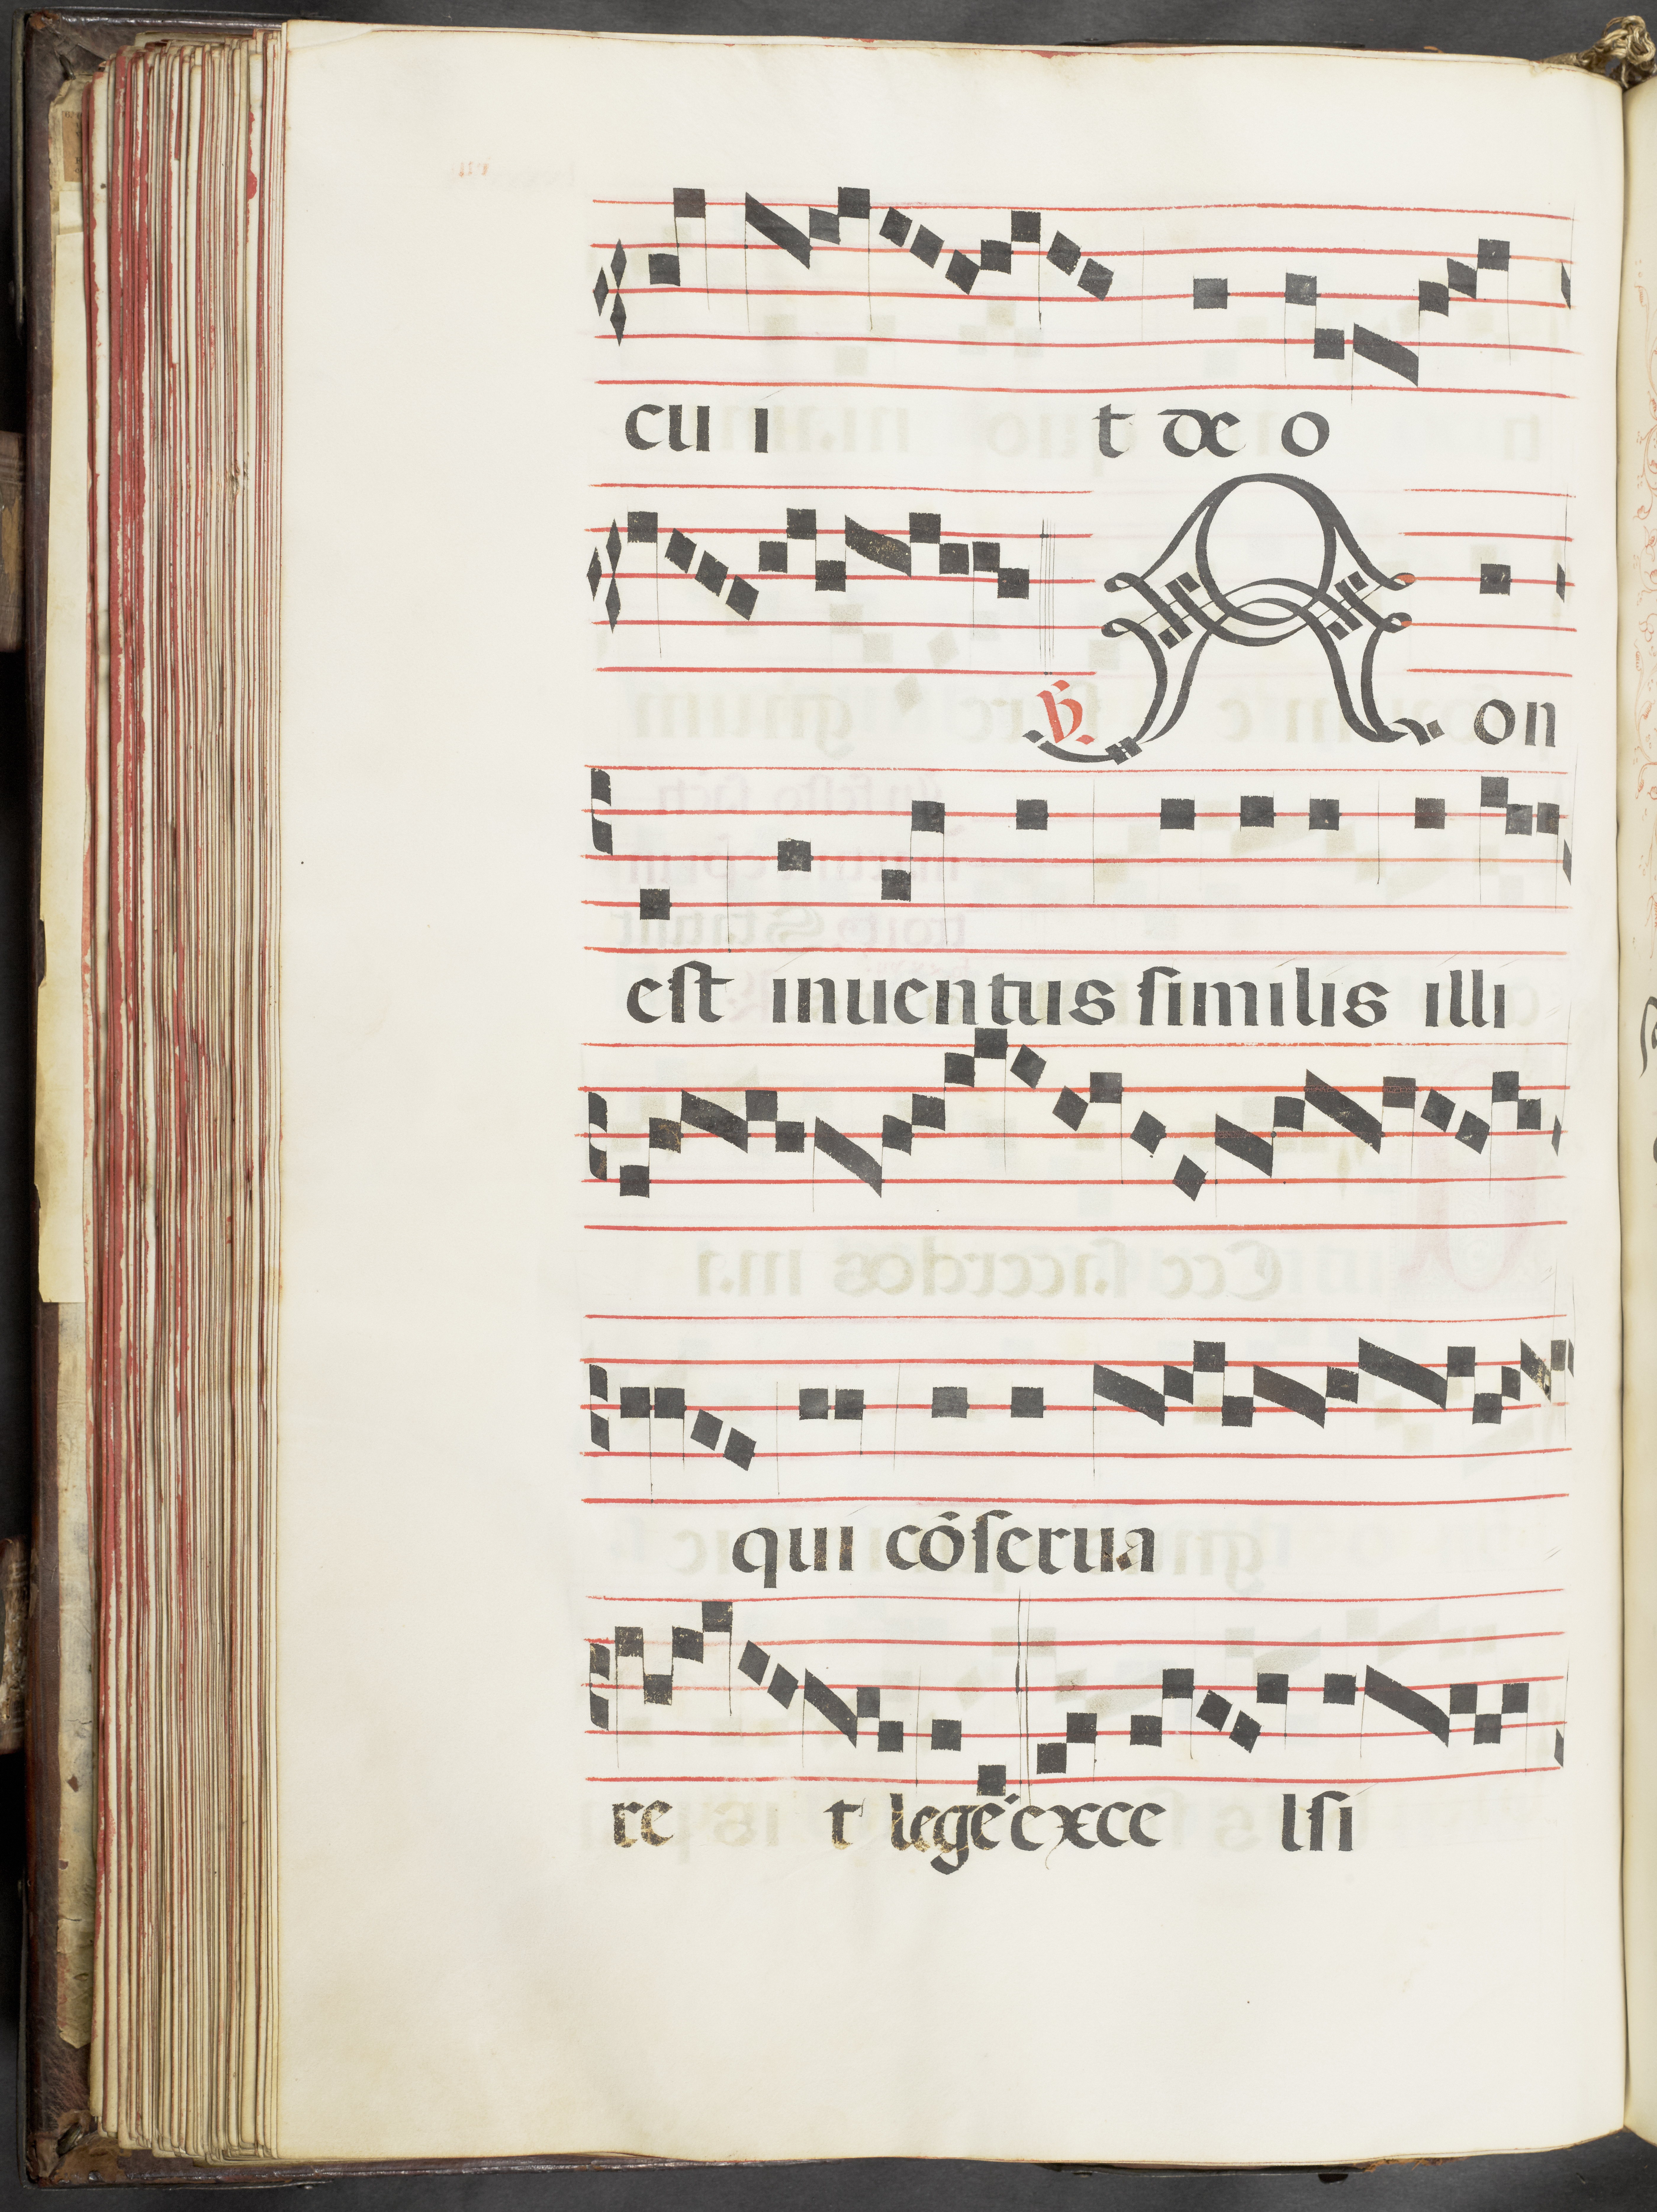 cu i t deo
℣. Non
est inuentus similis illi
qui cōserua
re t legē exce lsi